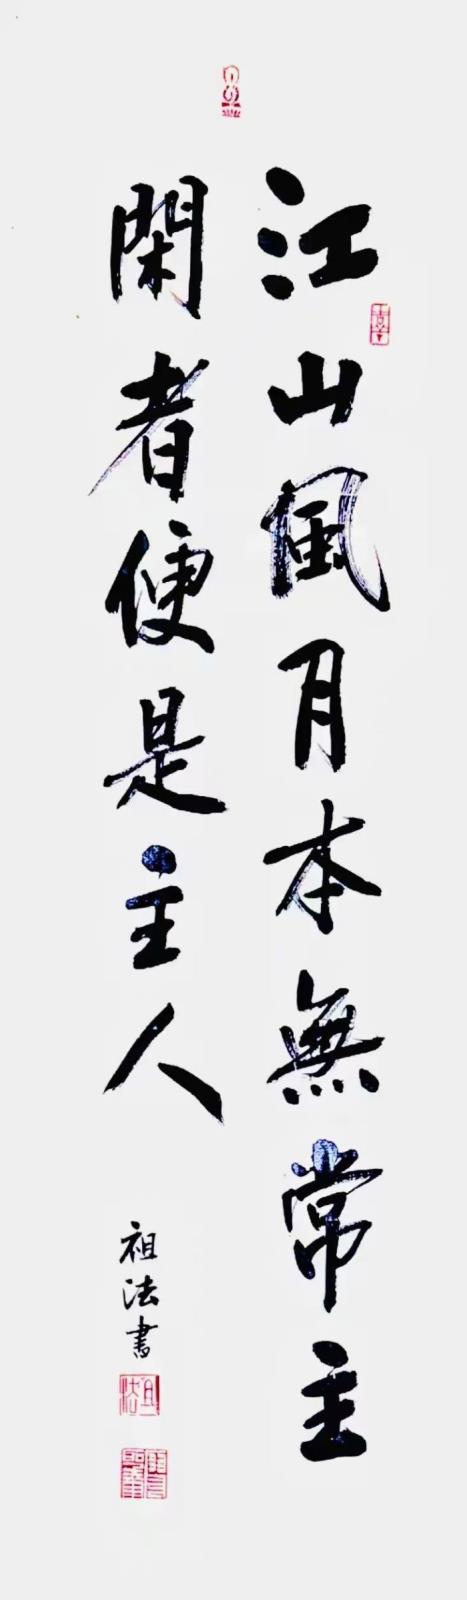 江山風月本無常主
閑者便是主人
祖法書
祖法